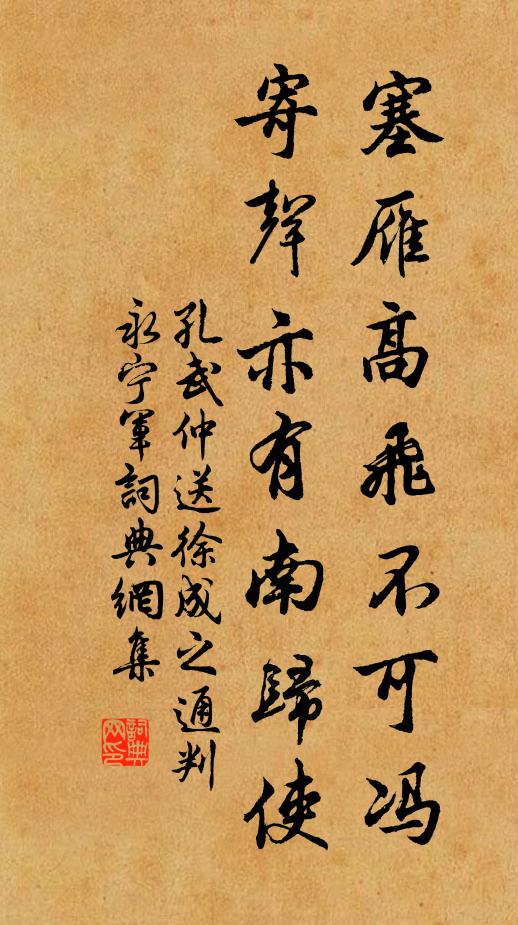 塞雁高飛不可冯
寄聲亦有南歸使
孔武仲送徐成之通判
永宁軍詞典網集
詞典
网印